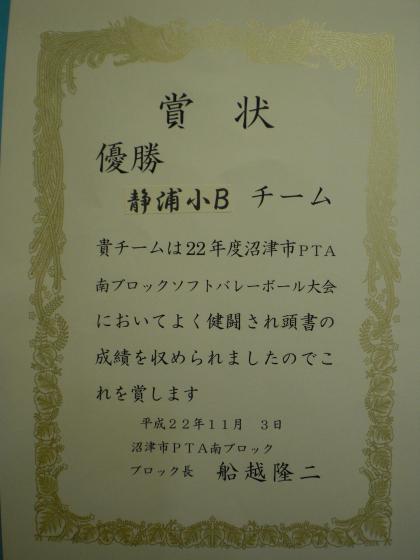 賞状
優勝
静浦小B チーム
貴チームは22年度沼津市PTA
南ブロックソフトバレーボール大会
においてよく健闘され頭書の
成績を収められましたのでこ
れを賞します
平成22年11月 3日
沼津市PTA南ブロック
ブロック長 船越隆二